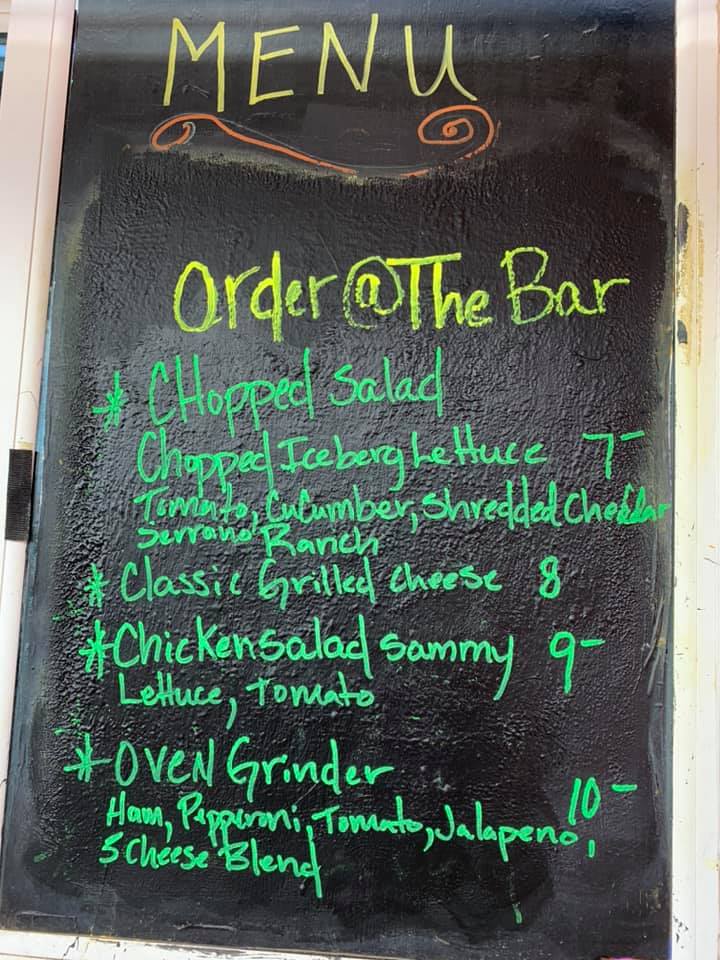 MENU
Order @ The Bar
* CHopped Salad
Chopped Iceberg Lettuce 7-
Tomato, CuCumber, Shredded Cheddar
Serrano Ranch
* Classic Grilled cheese 8
* Chicken salad sammy 9-
Lettuce, Tomato
* OVEN Grinder
10-
Ham, Pepperoni, Tomato, Jalapeno,
5 Cheese Blend